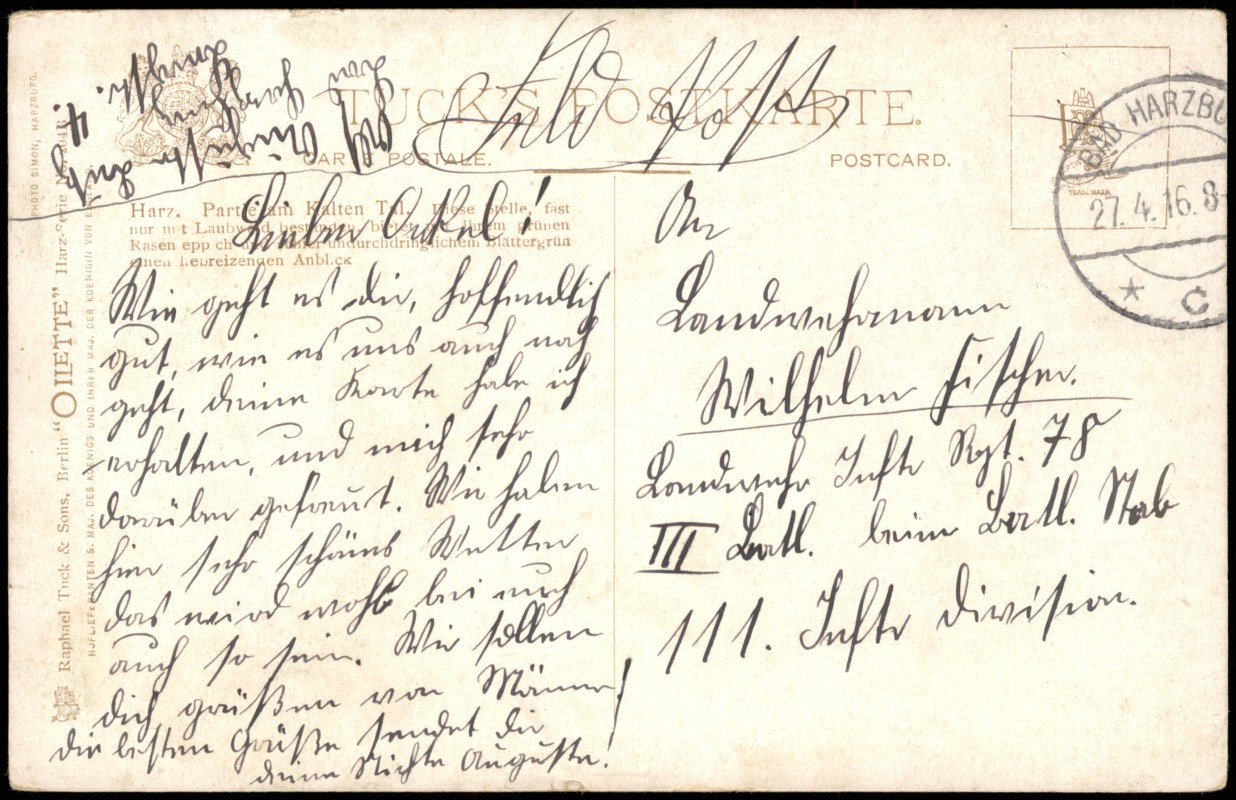 TUCK'S POSTKARTE.
CARTE POSTALE.
POSTCARD.
Feld Post
BAD HARZBU
27.4.16.8-
* C
TRADE MARK
PHOTO SIMON, HARZBURG.
Raphael Tuck & Sons, Berlin "OILETTE" Harz-Serie
HOFLIEFERANTEN S. MAJ. DES KOENIGS UND IHRER MAJ. DER KOENIGIN VON
Harz. Partie am Kalten Tal. Diese Stelle, fast
nur mit Laubwald bestanden, bietet in ihrem grünen
Rasenteppich und undurchdringlichem Blättergrün
einen liebreizenden Anblick
Lieber Onkel!
Wie geht es dir, hoffendlich
gut, wie es uns auch noch
geht, deine Karte habe ich
erhalten, und mich sehr
darüber gefreut. Wir haben
hier sehr schönes Wetter
das wird wohl bei euch
auch so sein. Wir sollen
dich grüßen von Männe!
die besten Grüße sendet dir
deine Nichte Auguste!
An
Landwehrmann
Wilhelm Fischer.
Landwehr Inftr Rgt. 78
III Batl. beim Batl. Stab
111. Inftr Division.